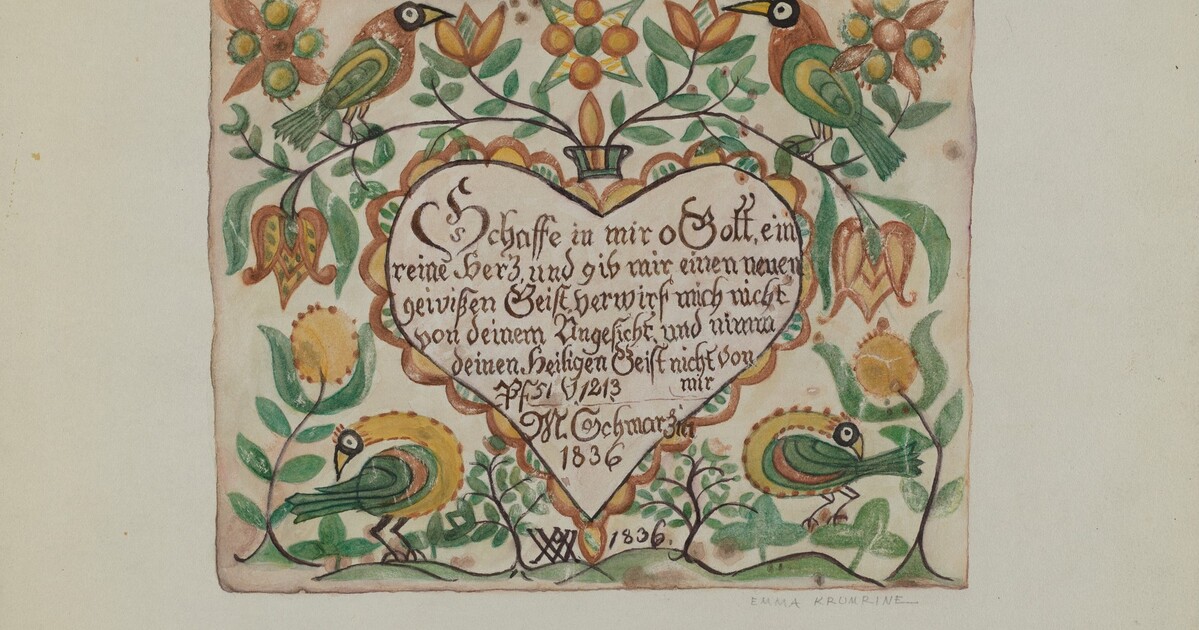 Schaffe in mir o Gott, ein
reine Herz und gib mir einen neuen
gewißen Geist, verwirf mich nicht
von deinem Angesicht, und nimm
deinen Heiligen Geist nicht von
mir
Ps 51 V. 1213
M. Schwarzin
1836
1836.
EMMA KRUMRINE